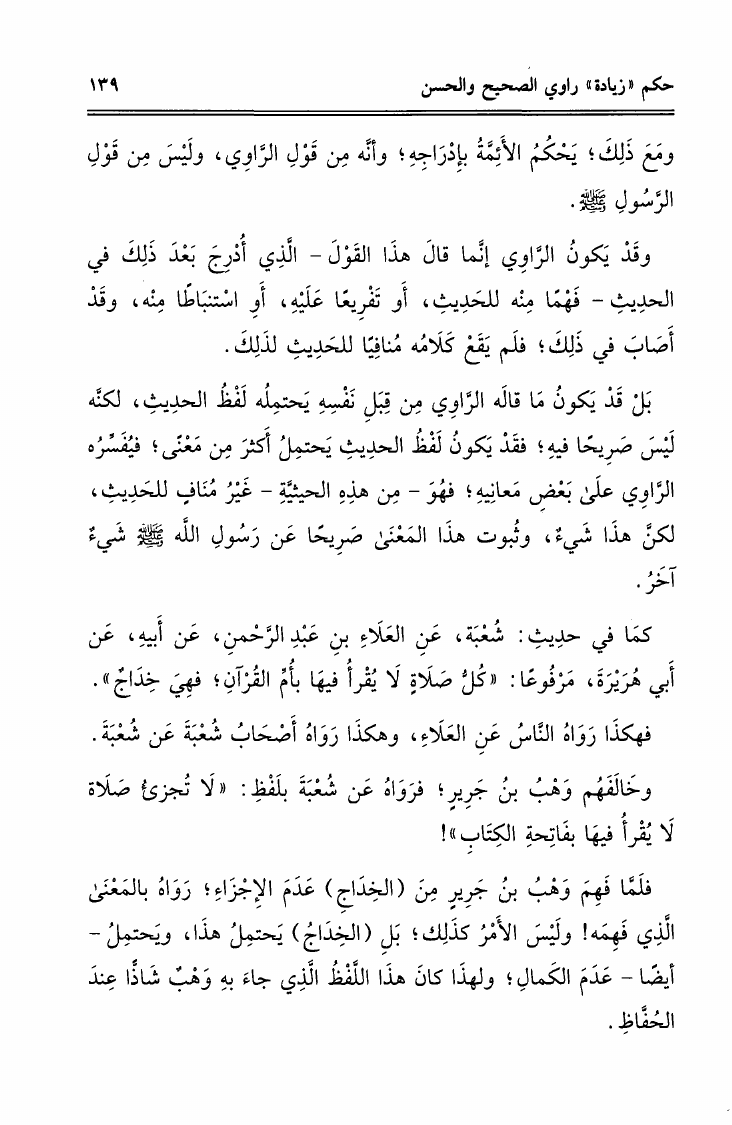 حكم «زيادة» راوي الصحيح والحسن ١٣٩
ومَعَ ذَلِكَ؛ يَحْكُمُ الأَئِمَّةُ بإِدْرَاجِهِ؛ وأنَّه مِن قَوْلِ الرَّاوِي، ولَيْسَ مِن قَوْلِ
الرَّسُولِ ﷺ.
وقَدْ يَكونُ الرَّاوِي إنَّما قالَ هذَا القَوْلَ – الَّذِي أُدْرِجَ بَعْدَ ذَلِكَ في
الحديثِ – فَهْمًا مِنْه للحَدِيثِ، أو تَفْرِيعًا عَلَيْهِ، أَوِ اسْتنبَاطًا مِنْه، وقَدْ
أصَابَ في ذَلِكَ؛ فلَم يَقَعْ كَلَامُه مُنافِيًا للحَدِيثِ لذلكَ.
بَلْ قَدْ يَكونُ مَا قالَه الرَّاوِي مِن قِبَلِ نَفْسِهِ يَحتمِلُه لَفْظُ الحديثِ، لكنَّه
لَيْسَ صَرِيحًا فيهِ؛ فقَدْ يَكونُ لَفْظُ الحديثِ يَحتمِلُ أكثرَ مِن مَعْنًى؛ فيُفَسِّرُه
الرَّاوِي علَىٰ بَعْضِ مَعانِيهِ؛ فهُوَ – مِن هذِهِ الحيثيَّةِ – غَيْرُ مُنَافٍ للحَدِيثِ،
لكنَّ هذَا شَيءٌ، وثُبوت هذَا المَعْنَىٰ صَرِيحًا عَن رَسُولِ اللَّه ﷺ شَيءٌ
آخَرُ.
كمَا في حدِيثِ: شُعْبَة، عَنِ العَلَاءِ بنِ عَبْدِ الرَّحْمنِ، عَن أَبيهِ، عَن
أبي هُرَيْرَةَ، مَرْفُوعًا: «كُلُّ صَلَاةٍ لَا يُقْرأُ فيهَا بأُمِّ القُرْآنِ؛ فهِيَ خِدَاجٌ».
فهكذَا رَوَاهُ النَّاسُ عَنِ العَلَاءِ، وهكذَا رَوَاهُ أصْحَابُ شُعْبَةَ عَن شُعْبَةَ.
وخَالَفَهُم وَهْبُ بنُ جَرِيرٍ؛ فرَوَاهُ عَن شُعْبَةَ بلَفْظِ: «لَا تُجزئُ صَلَاة
لَا يُقْرأُ فيهَا بفَاتِحةِ الكِتَابِ»!
فلَمَّا فَهِمَ وَهْبُ بنُ جَرِيرٍ مِنَ (الخِدَاجِ) عَدَمَ الإِجْزَاءِ؛ رَوَاهُ بالمَعْنَىٰ
الَّذِي فَهِمَه! ولَيْسَ الأَمْرُ كذَلِك؛ بَلِ (الخِدَاجُ) يَحتمِلُ هذَا، ويَحتمِلُ –
أيضًا – عَدَمَ الكَمالِ؛ ولهذَا كانَ هذَا اللَّفْظُ الَّذِي جاءَ بهِ وَهْبٌ شَاذًّا عِندَ
الحُفَّاظِ.